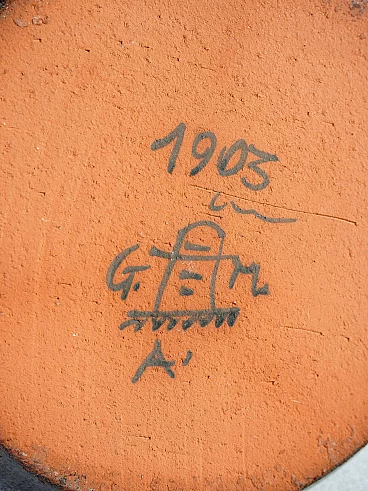 1903
G. M.
A.